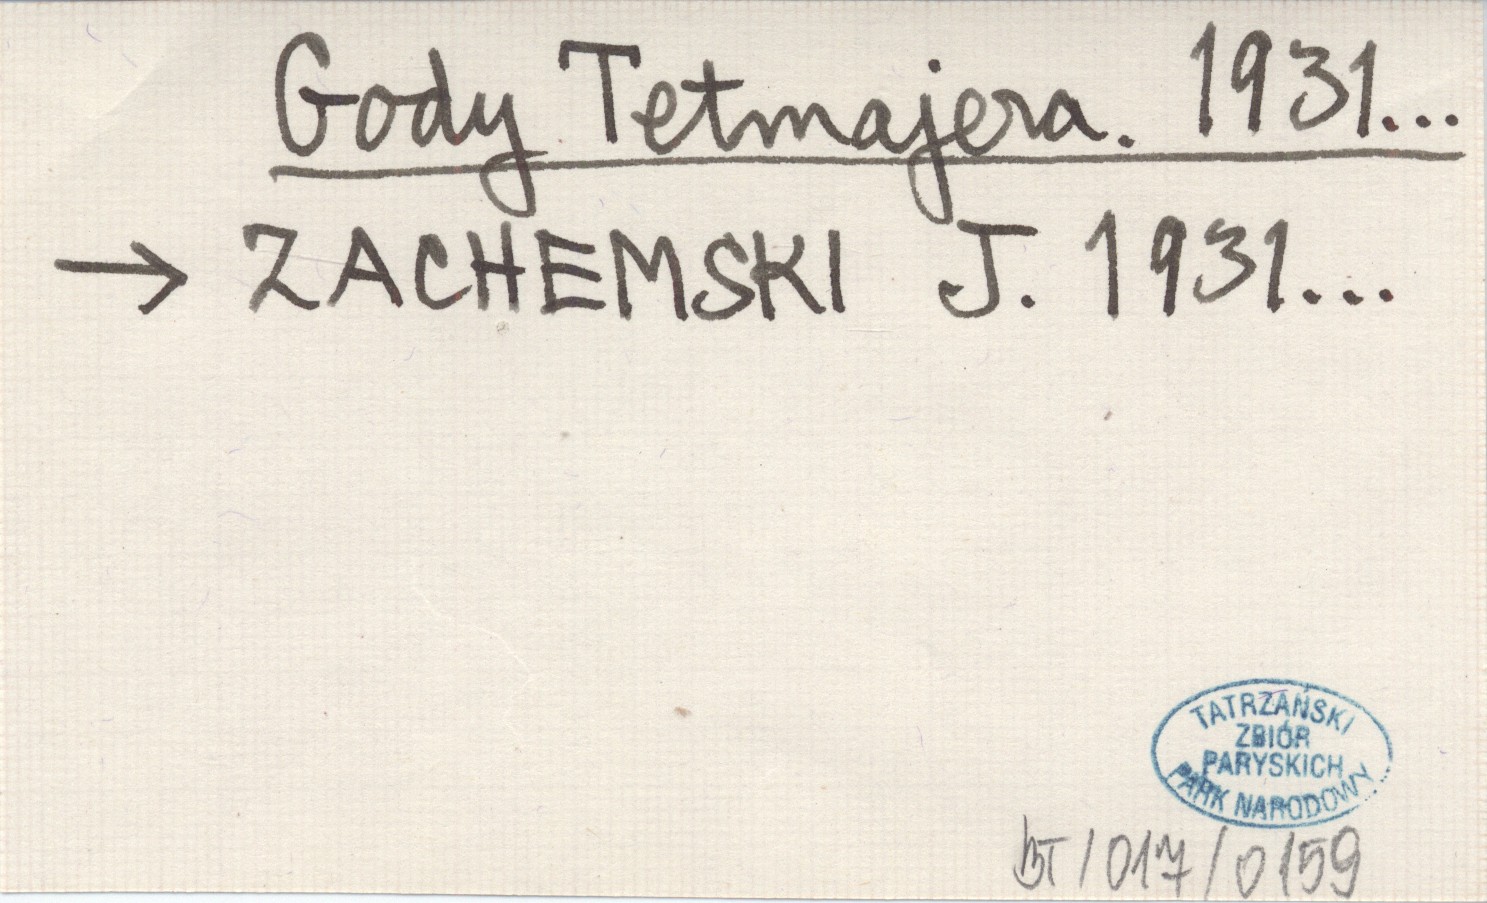 Gody Tetmajera. 1931...
→ ZACHEMSKI J. 1931...
TATRZAŃSKI
ZBIÓR
PARYSKICH
PARK NARODOWY
BT/017/0159